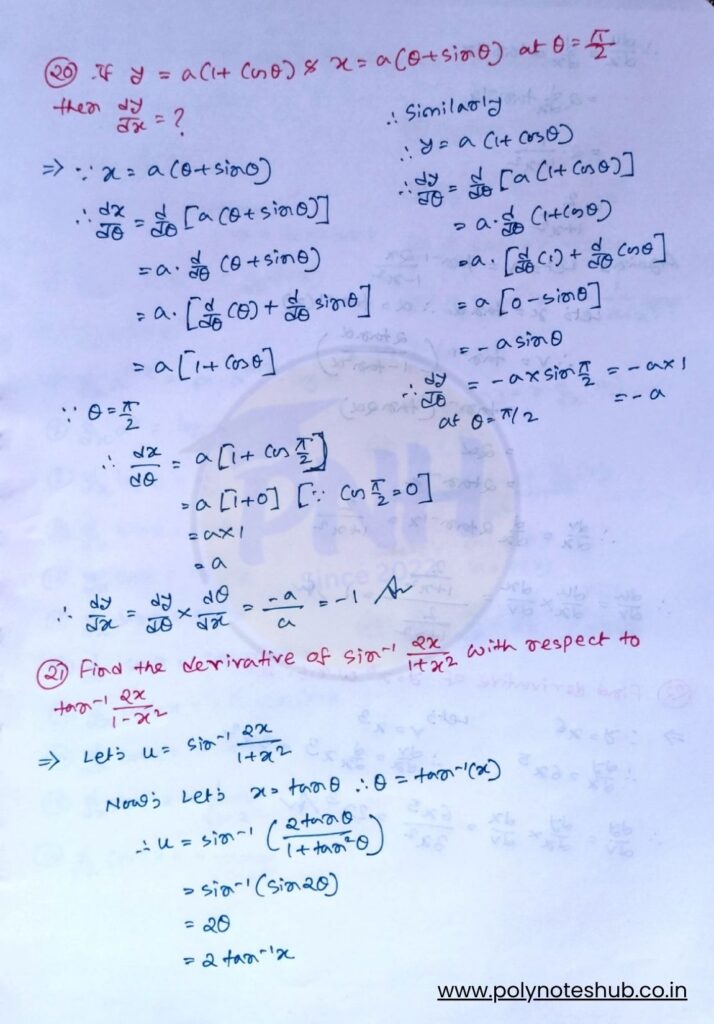 (20) If y = a(1+ cosθ) & x = a(θ+sinθ) at θ = π/2
then dy/dx = ?
⇒ ∵ x = a(θ+sinθ)
∴ dx/dθ = d/dθ [a(θ+sinθ)]
= a. d/dθ (θ+sinθ)
= a. [d/dθ (θ) + d/dθ sinθ]
= a[1+cosθ]
∵ θ = π/2
∴ dx/dθ = a[1+ cos π/2]
= a[1+0] [∵ cos π/2 = 0]
= a×1
= a
∴ Similarly
∴ y = a(1+cosθ)
∴ dy/dθ = d/dθ [a(1+cosθ)]
= a. d/dθ (1+cosθ)
= a. [d/dθ (1) + d/dθ cosθ]
= a[0-sinθ]
= -a sinθ
∴ dy/dθ = -a× sin π/2 = -a×1
at θ = π/2 = -a
∴ dy/dx = dy/dθ × dθ/dx = -a/a = -1 Ans
(21) Find the derivative of sin⁻¹ 2x/1+x² with respect to
tan⁻¹ 2x/1-x²
⇒ Let's u = sin⁻¹ 2x/1+x²
Now, Let's x = tanθ ∴ θ = tan⁻¹(x)
∴ u = sin⁻¹ (2tanθ/1+tan²θ)
= sin⁻¹(sin2θ)
= 2θ
= 2 tan⁻¹x
PNH
Since 2022
www.polynoteshub.co.in